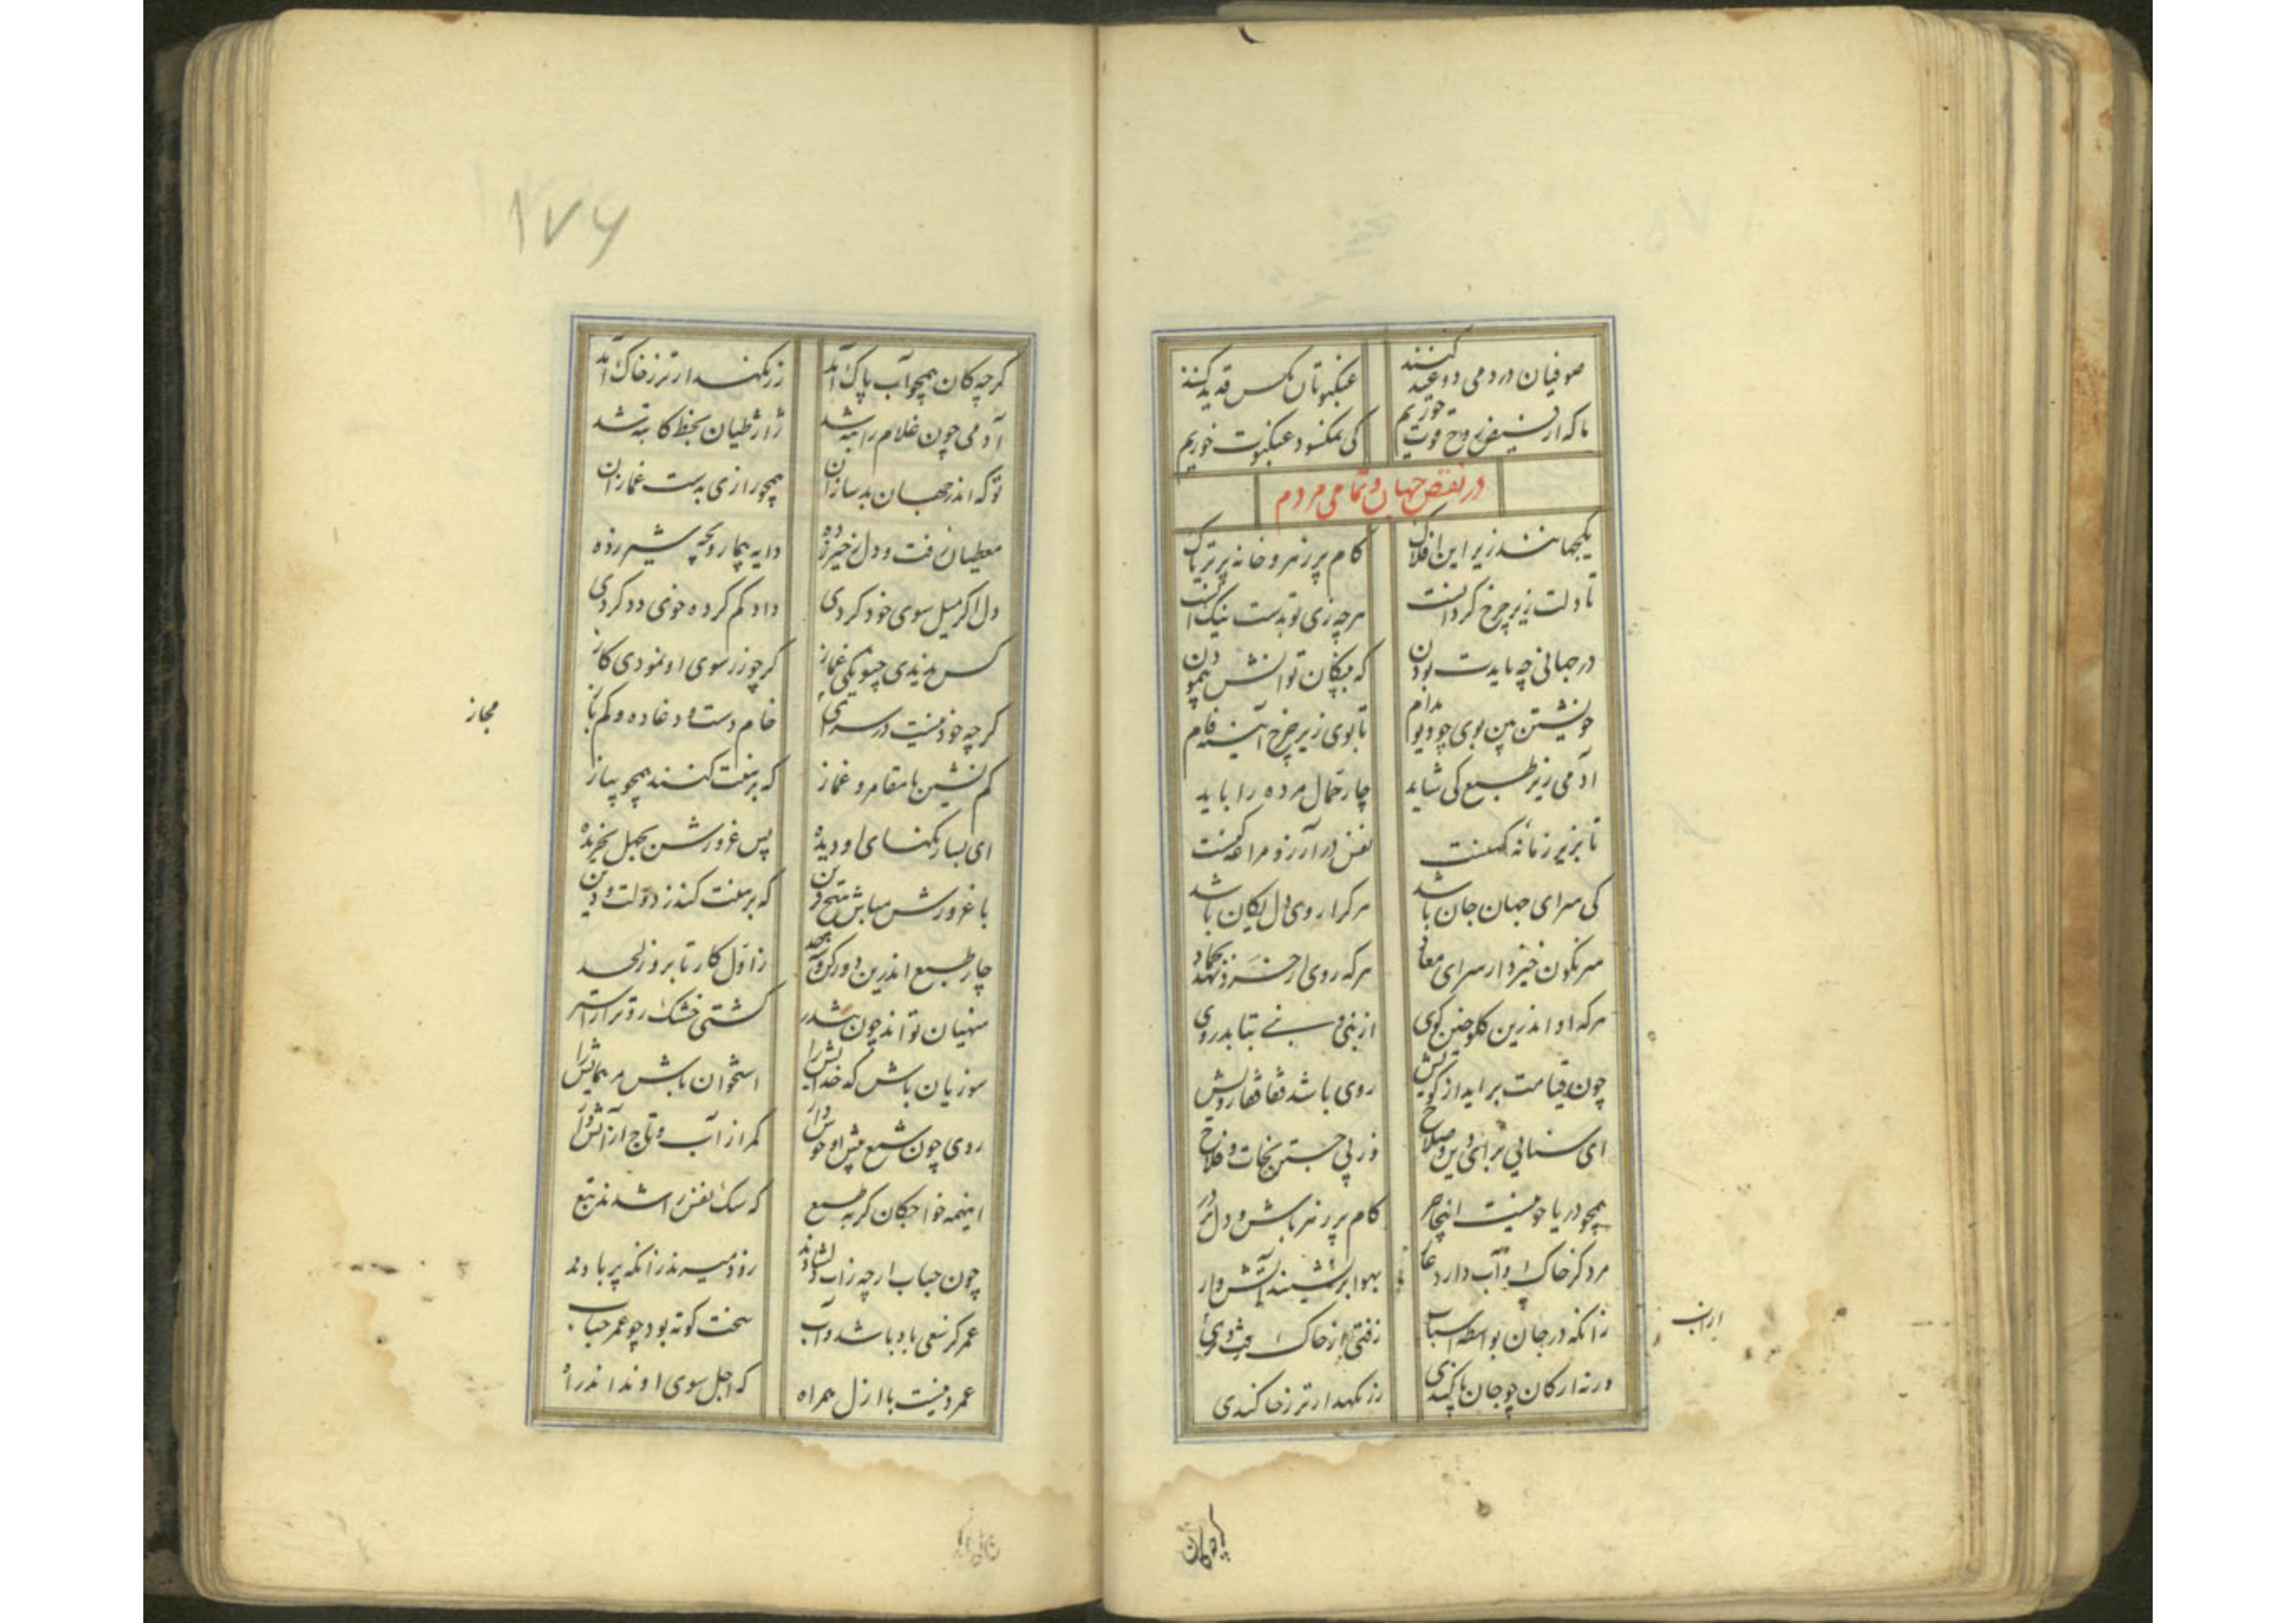 صوفیان در دمی دو عید کنند عنکبوتان مکس قدید کنند
ما که از فیض روح قوت خوریم کی نمکسود عنکبوت خوریم
در نقص جهان و تمامی مردم
یکجهانند زیر این افلاک کام پر زهر و خانه پر تریاک
تا دلت زیر چرخ کردانست هرچه زی تو بدست نیک آنست
در جهانی چه بایدت بودن که بپنکان توانش پیمودن
خویشتن بین بوی چو دیو مدام تا بوی زیر چرخ آینه فام
آدمی زیر طبع کی شاید چار حمال مرده را باید
تا بزیر زمانه کهنست نفس در آرزو مراغه کنست
کی سرای جهان جان باشد هرکرا روی دل بکان باشد
سرنکون خیزد از سرای معاد هرکه روی از خرد نهد بجماد
هرکه او اندرین کلوخین کوی از بنی و نبی بتابد روی
چون قیامت براید از کویش روی باشد قفا قفا رویش
ای سنایی برای دین و صلاح وز پی جستن نجات و فلاح
همچو دریا چو نیست اینجا حر کام پر زهر باش و دل پر در
مرد کز خاک و آب دارد عار بهوا بر نشیند آتش وار
زانکه در جان بواسطه اسباب
ایران
ورنه ارکان چو جان پاکندی زر نکهدارتر ز خاکندی
کرچه کان
۱۷۶
کرچه کان همچو آب پاک آمد زر نکهدارتر ز خاک آمد
آدمی چون غلام راتبه شد ژاژ طیان بحفظ کاتبه شد
تو که اندر جهان بدسازان همچو رازی بدست غمازان
دایه بیمار و بچه شیر زده
دل اکر میل سوی خود کردی داد کم کرده خوی دد کردی
کس ندیدی چنو یکی غماز کر چو زر سوی او نمودی کاز
کرچه خود نیست در سرای خام دست و دغا ده و کم باز
مجاز
کم نشین با مقامر و غماز که برهنت کنند همچو پیاز
ای بسا رنکهای او دیده پس غرورش بجهل بخریده
با غرورش مباش هیچ قرین که برهنت کند ز دولت و دین
چار طبع اندرین ز اول کار تا بروز لحد
منهیان تو اند چون کشتی خشک رو تر از استر
سوزیان باش که خدایش را استخوان باش مر همایش را
روی چون شمع پیش او خوش دار کمر از آب و تاج از آتش دار
اینهمه خواجکان کربه طبع که سک نفس را شدند تبع
چون حباب ارچه ز آب دلشادند زود میرند زانکه پر بادند
عمر کز سعی باد باشد و آب سخت کوته بود چو عمر حباب
عمر دینست با ازل همراه که اجل سوی او نداند راه